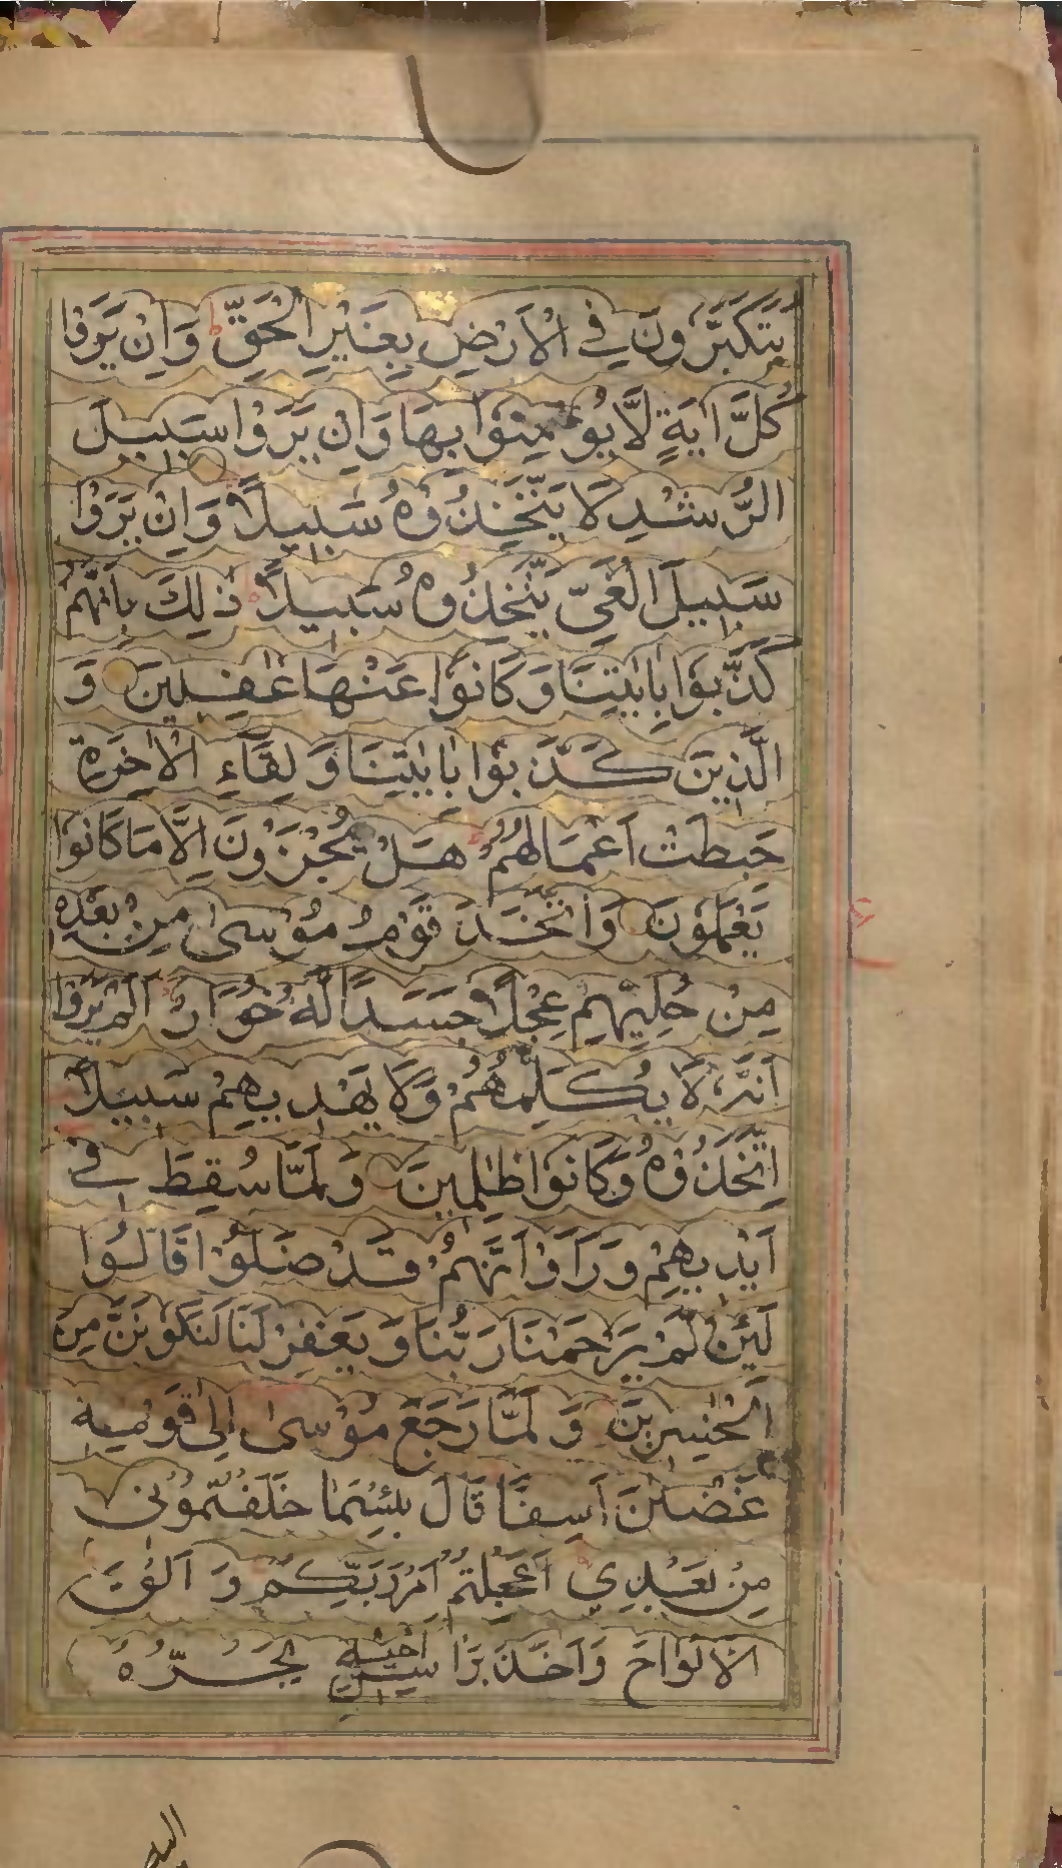 يَتَكَبَّرُونَ فِي الْاَرْضِ بِغَيْرِ الْحَقِّ ط وَاِنْ يَرَوْا
كُلَّ اٰيَةٍ لَّا يُؤْمِنُوْا بِهَا وَاِنْ يَرَوْا سَبِيلَ
الرُّشْدِ لَا يَتَّخِذُوْهُ سَبِيلًا وَاِنْ يَرَوْا
سَبِيلَ الْغَيِّ يَتَّخِذُوْهُ سَبِيلًا ذٰلِكَ بِاَنَّهُمْ
كَذَّبُوْا بِاٰيٰتِنَا وَكَانُوْا عَنْهَا غٰفِلِينَ وَ
الَّذِينَ كَذَّبُوْا بِاٰيٰتِنَا وَلِقَآءِ الْاٰخِرَةِ
حَبِطَتْ اَعْمَالُهُمْ ط هَلْ يُجْزَوْنَ اِلَّا مَا كَانُوْا
يَعْمَلُوْنَ وَاتَّخَذَ قَوْمُ مُوْسٰى مِنْ بَعْدِهٖ
مِنْ حُلِيِّهِمْ عِجْلًا جَسَدًا لَّهٗ خُوَارٌ ط اَلَمْ يَرَوْا
اَنَّهٗ لَا يُكَلِّمُهُمْ وَلَا يَهْدِيهِمْ سَبِيلًا
اِتَّخَذُوْهُ وَكَانُوْا ظٰلِمِينَ وَلَمَّا سُقِطَ فِي
اَيْدِيهِمْ وَرَاَوْا اَنَّهُمْ قَدْ ضَلُّوْا قَالُوْا
لَئِنْ لَّمْ يَرْحَمْنَا رَبُّنَا وَيَغْفِرْ لَنَا لَنَكُوْنَنَّ مِنَ
الْخٰسِرِينَ وَلَمَّا رَجَعَ مُوْسٰى اِلٰى قَوْمِهٖ
غَضْبٰنَ اَسِفًا قَالَ بِئْسَمَا خَلَفْتُمُوْنِي
مِنْ بَعْدِي اَعَجِلْتُمْ اَمْرَ رَبِّكُمْ وَاَلْقَى
الْاَلْوَاحَ وَاَخَذَ بِرَاْسِ اَخِيْهِ يَجُرُّهٗ
ع